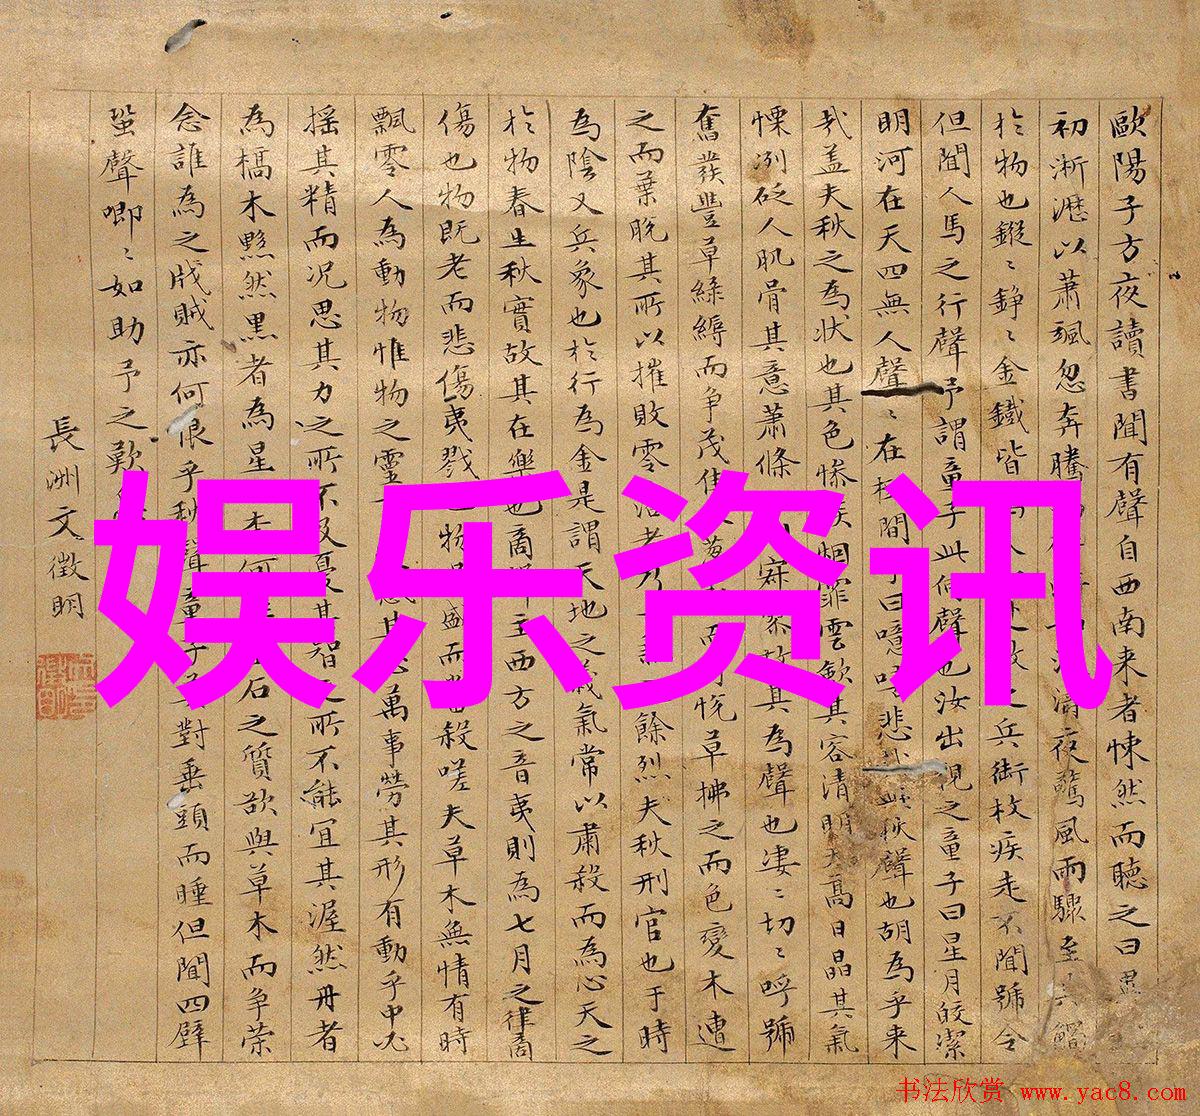 歐陽子方夜讀書聞有聲自西南来者悚然而聽之曰異
初淅瀝以蕭颯忽奔騰夜驚風雨驟至其觸
於物也鏦〻錚〻金鐵皆之兵銜枚疾走不聞號令
但聞人馬之行聲予謂童子此何聲也汝出視之童子曰星月皎潔
明河在天四無人聲〻在樹間予曰噫嘻悲哉此秋聲也胡為乎来
哉盖夫秋之為状也其色惨烟霏雲歛其容清明天高日晶其氣
慄冽砭人肌骨其意蕭條寂寥故其為聲也凄〻切〻呼號
奮發豐草緑縟而争茂佳葱而可悦草拂之而色變木遭
之而葉脱其所以摧敗零落者乃一餘烈夫秋刑官也于時
為陰又兵象也於行為金是謂天地之義氣常以肅殺而為心天之
於物春生秋實故其在樂也商聲主西方之音夷則為七月之律商
傷也物既老而悲傷夷戮也物過盛而當殺嗟夫草木無情有時
飄零人為動物惟物之靈感其心萬事勞其形有動乎中必
摇其精而况思其力之所不及憂其智之所不能宜其渥然丹者
為槁木黟然黒者為星奈何石之質欲與草木而争榮
念誰為之戕賊亦何恨乎秋聲童子莫對垂頭而睡但聞四壁
蛩聲唧〻如助予之歎
長洲文徵明
娱乐资讯
书法欣赏 www.yac8.com